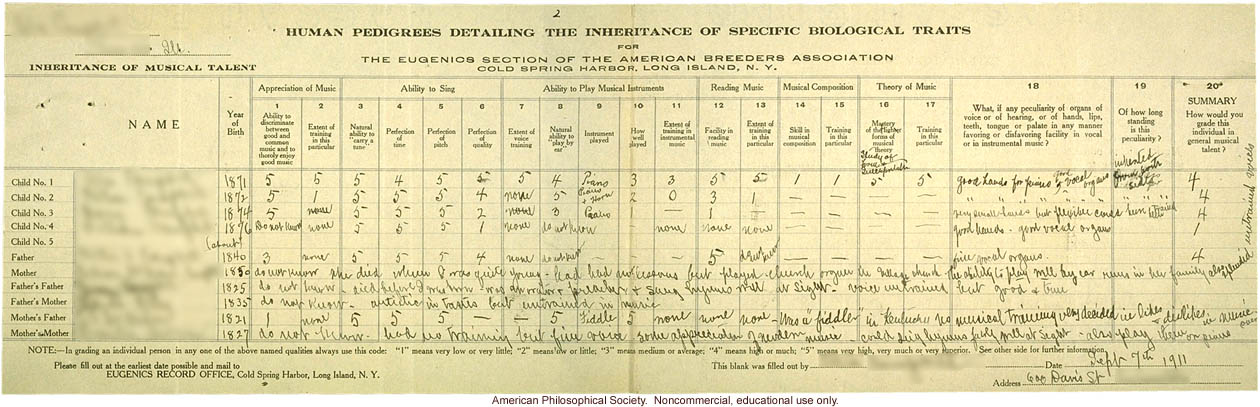 2
HUMAN PEDIGREES DETAILING THE INHERITANCE OF SPECIFIC BIOLOGICAL TRAITS
FOR
THE EUGENICS SECTION OF THE AMERICAN BREEDERS ASSOCIATION
COLD SPRING HARBOR, LONG ISLAND, N. Y.
INHERITANCE OF MUSICAL TALENT
Appreciation of Music Ability to Sing Ability to Play Musical Instruments Reading Music Musical Composition Theory of Music 18 19 20
NAME Year of Birth
1 Ability to discriminate between good and common music and to thoroly enjoy good music
2 Extent of training in this particular
3 Natural ability to "carry a tune"
4 Perfection of time
5 Perfection of pitch
6 Perfection of quality
7 Extent of voice training
8 Natural ability to "play by ear"
9 Instrument played
10 How well played
11 Extent of training in instrumental music
12 Facility in reading music
13 Extent of training in this particular
14 Skill in musical composition
15 Training in this particular
16 Mastery of the higher forms of musical Theory
17 Training in this particular
What, if any peculiarity of organs of voice or of hearing, or of hands, lips, teeth, tongue or palate in any manner favoring or disfavoring facility in vocal or in instrumental music?
Of how long standing is this peculiarity?
SUMMARY How would you grade this individual in general musical talent?
Child No. 1 1871 5 5 5 4 5 5 5 4 Piano 3 3 5 5 1 1 5 5 good hands for piano good vocal organs 4
Child No. 2 1872 5 1 5 5 5 4 none 5 Piano & Horn 2 0 3 1 — — — — 4
Child No. 3 1874 5 none 5 5 5 2 none 3 Piano 1 — 1 — — — — — very small hands but flexible 4
Child No. 4 1876 Do not know none 5 5 5 1 none do not know none none none good hands - good vocal organs 1
Child No. 5 (about)
Father 1840 3 none 5 5 5 4 none 5 do not know fine vocal organs. 4
Mother 1850 do not know she died when I was quite young - had had no lessons but played church organ in village church the ability to play well by ear runs in her family also
Father's Father 1825 do not know - died before I was born - was an orator & preacher & sung hymns well at sight - voice untrained but good & true
Father's Mother 1835 do not know - artistic in tastes but untrained in music
Mother's Father 1821 1 none 5 5 5 — none 5 Fiddle 5 none none none - was a "fiddler" in Kentucky no musical training very decided in likes & dislikes in music
Mother's Mother 1827 do not know - had no training but fine voice - some appreciation of modern music - could sing hymns fairly well at sight - also play them on piano
NOTE:—In grading an individual person in any one of the above named qualities always use this code: "1" means very low or very little; "2" means low or little; "3" means medium or average; "4" means high or much; "5" means very high, very much or very superior. See other side for further information.
Please fill out at the earliest date possible and mail to
EUGENICS RECORD OFFICE, Cold Spring Harbor, Long Island, N. Y.
This blank was filled out by Date Sept 7th 1911
Address 600 Davis St
American Philosophical Society. Noncommercial, educational use only.